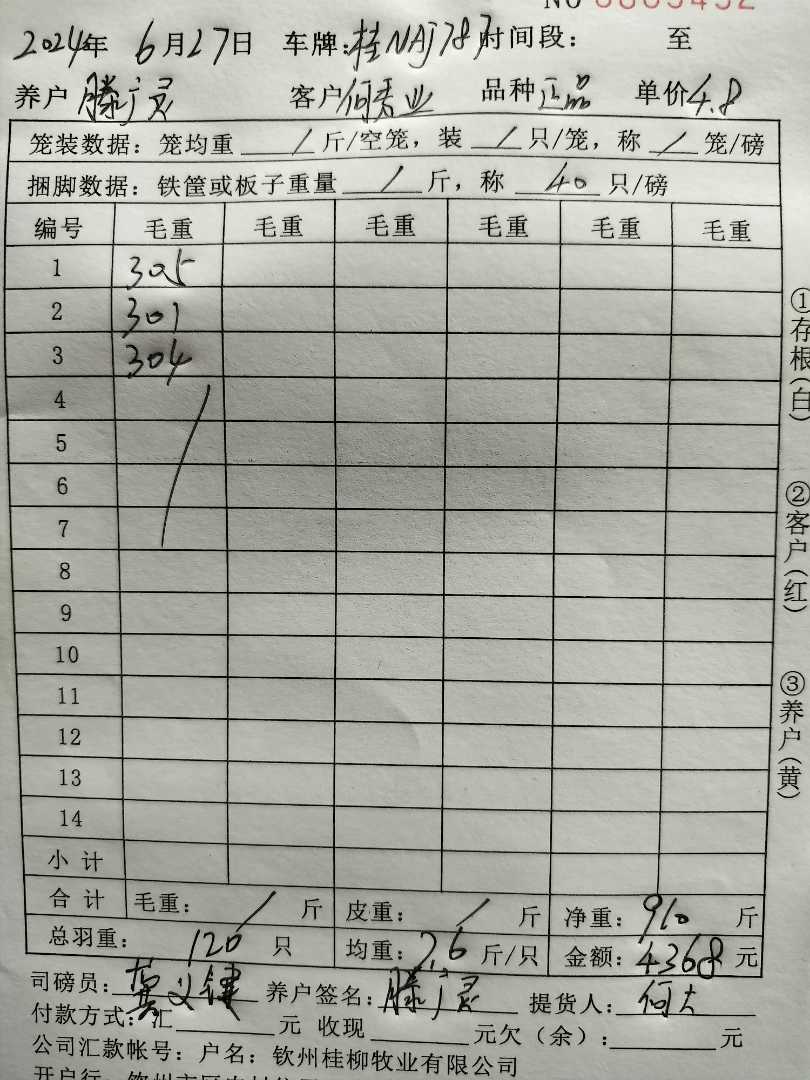 NO 0005452
2024年 6月27日 车牌:桂NAJ787 时间段: 至
养户 滕广灵 客户 何秀业 品种 正品 单价 4.8
笼装数据: 笼均重 / 斤/空笼, 装 / 只/笼, 称 / 笼/磅
捆脚数据: 铁筐或板子重量 / 斤, 称 40 只/磅
编号 毛重 毛重 毛重 毛重 毛重 毛重
1 305
2 301
3 304
4
5
6
7
8
9
10
11
12
13
14
小计
合计 毛重: / 斤 皮重: / 斤 净重: 910 斤
总羽重: 120 只 均重: 7.6 斤/只 金额: 4368 元
司磅员: 养户签名: 滕广灵 提货人: 何
付款方式: 汇 元 收现 元欠(余): 元
公司汇款帐号: 户名: 钦州桂柳牧业有限公司
①存根(白)
②客户(红)
③养户(黄)